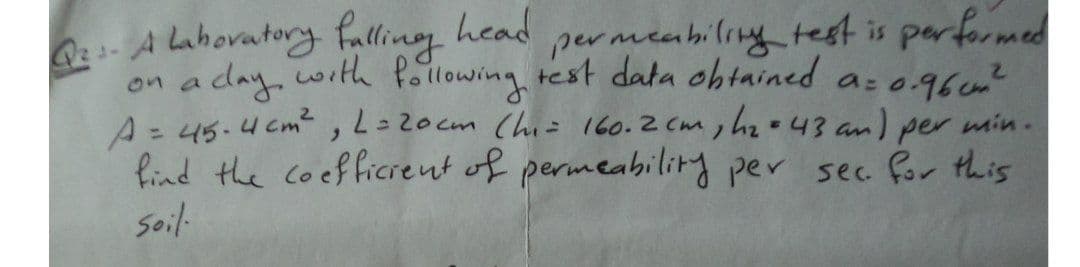 Q2:- A Laboratory falling head permeability test is performed
on a clay with following test data obtained a = 0.96 cm²
A = 45.4 cm², L = 20 cm (h₁ = 160.2 cm, h₂ = 43 cm) per min.
find the coefficient of permeability per sec. for this
soil.